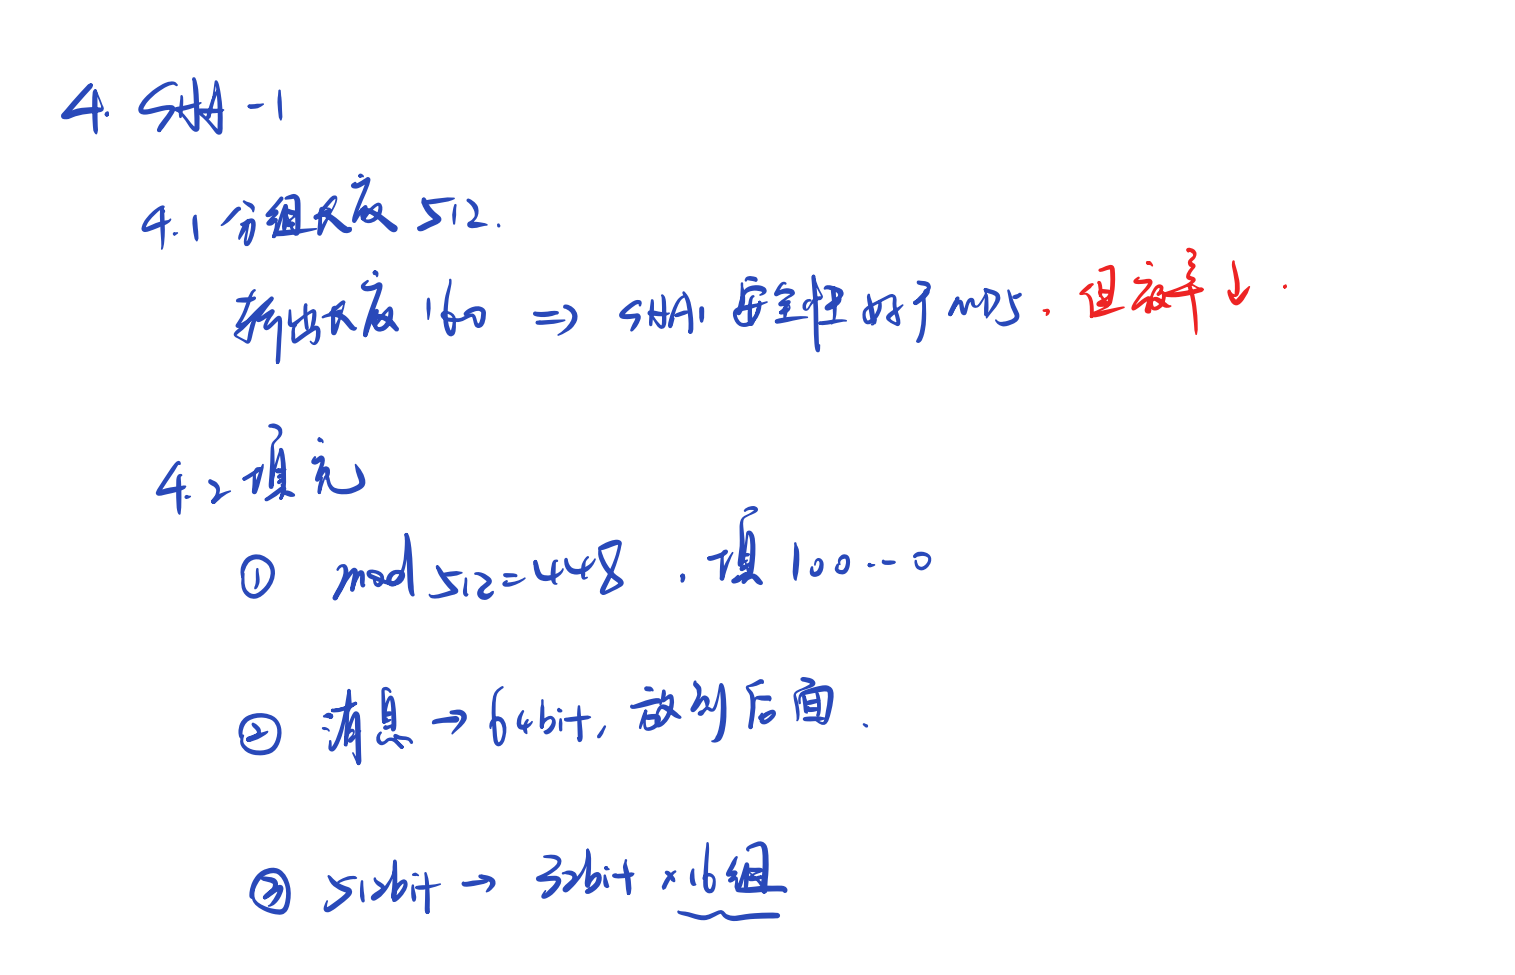 4. SHA-1
4.1 分组长度 512.
输出长度 160 ⇒ SHA1 安全性好于 MD5. 但效率↓.
4.2 填充
① mod 512=448 . 填 100...0
② 消息 → 64bit, 放到后面.
③ 512bit → 32bit ×16组